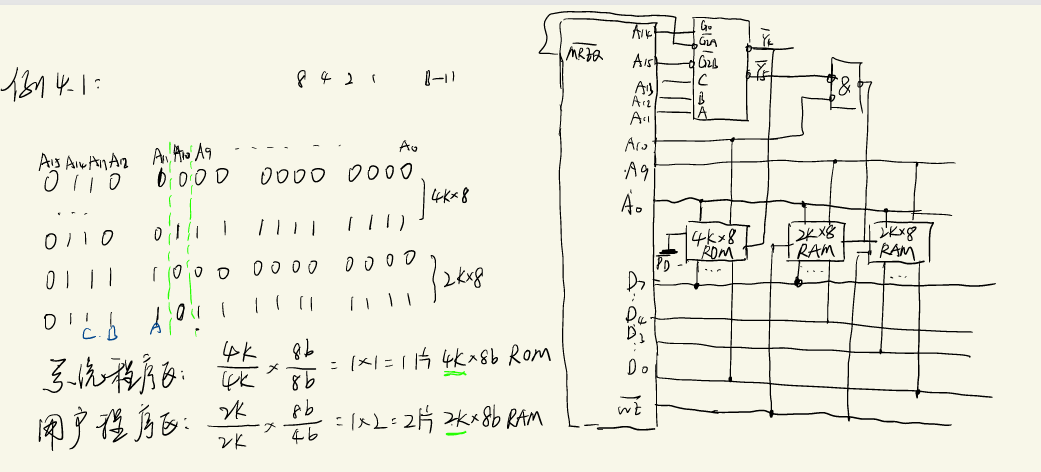 例4-1:
8 4 2 1 B-11
A15 A14 A13 A12 A11 A10 A9 ...... A0
0 1 1 0 0 0 0 0 0000 0000
...
0 1 1 0 0 1 1 1 1111 1111
4K×8
0 1 1 1 1 0 0 0 0000 0000
0 1 1 1 1 0 1 1 1111 1111
2K×8
C B A
系统程序区: 4K/4K × 8b/8b = 1×1 = 1片 4K×8b Rom
用户程序区: 2K/2K × 8b/4b = 1×2 = 2片 2K×8b RAM
MREQ
A14
A15
A13
A12
A11
A10
A9
A0
G0
G2A
G2B
C
B
A
Y4
Y5
&
4K×8 ROM
2K×8 RAM
2K×8 RAM
PD
...
...
...
D7
:
D4
D3
:
D0
WE